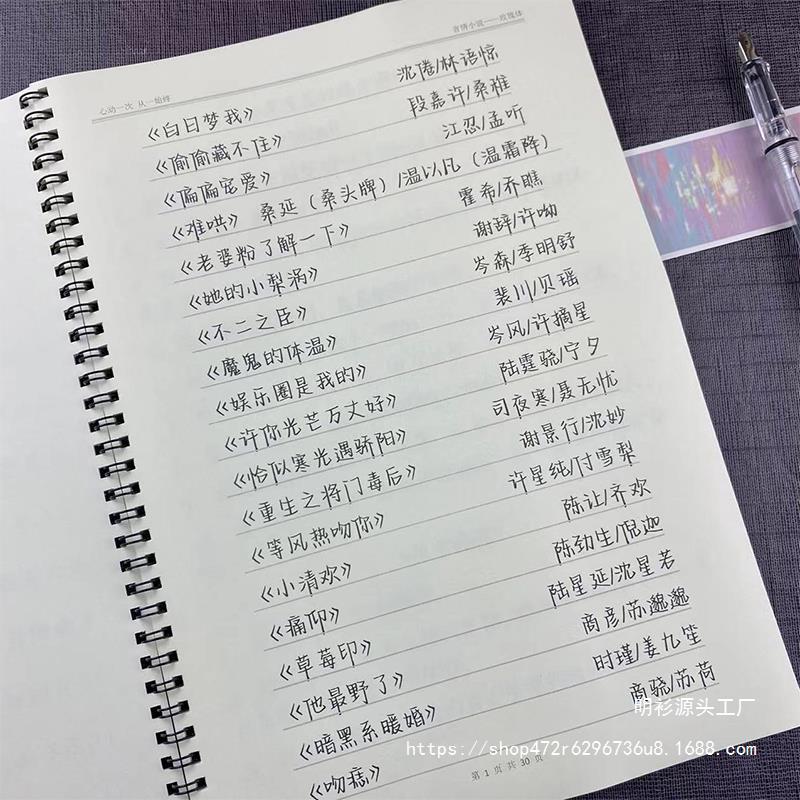 言情小说——玫瑰体
心动一次 从一始终
《白日梦我》 沈倦/林语惊
《偷偷藏不住》 段嘉许/桑稚
《偏偏宠爱》 江忍/孟听
《难哄》 桑延（桑头牌）/温以凡（温霜降）
《老婆粉了解一下》 霍希/乔瞧
《她的小梨涡》 谢辞/许呦
《不二之臣》 岑森/季明舒
《魔鬼的体温》 裴川/贝瑶
《娱乐圈是我的》 岑风/许摘星
《许你光芒万丈好》 陆霆骁/宁夕
《恰似寒光遇骄阳》 司夜寒/聂无忧
《重生之将门毒后》 谢景行/沈妙
《等风热吻你》 许星纯/付雪梨
《小清欢》 陈让/齐欢
《痛仰》 陈劲生/倪迦
《草莓印》 陆星延/沈星若
《他最野了》 商彦/苏邈邈
《暗黑系暖婚》 时瑾/姜九笙
《吻痣》 商骁/苏荷
明衫源头工厂
https://shop472r6296736u8.1688.com
第 1 页 共 30 页